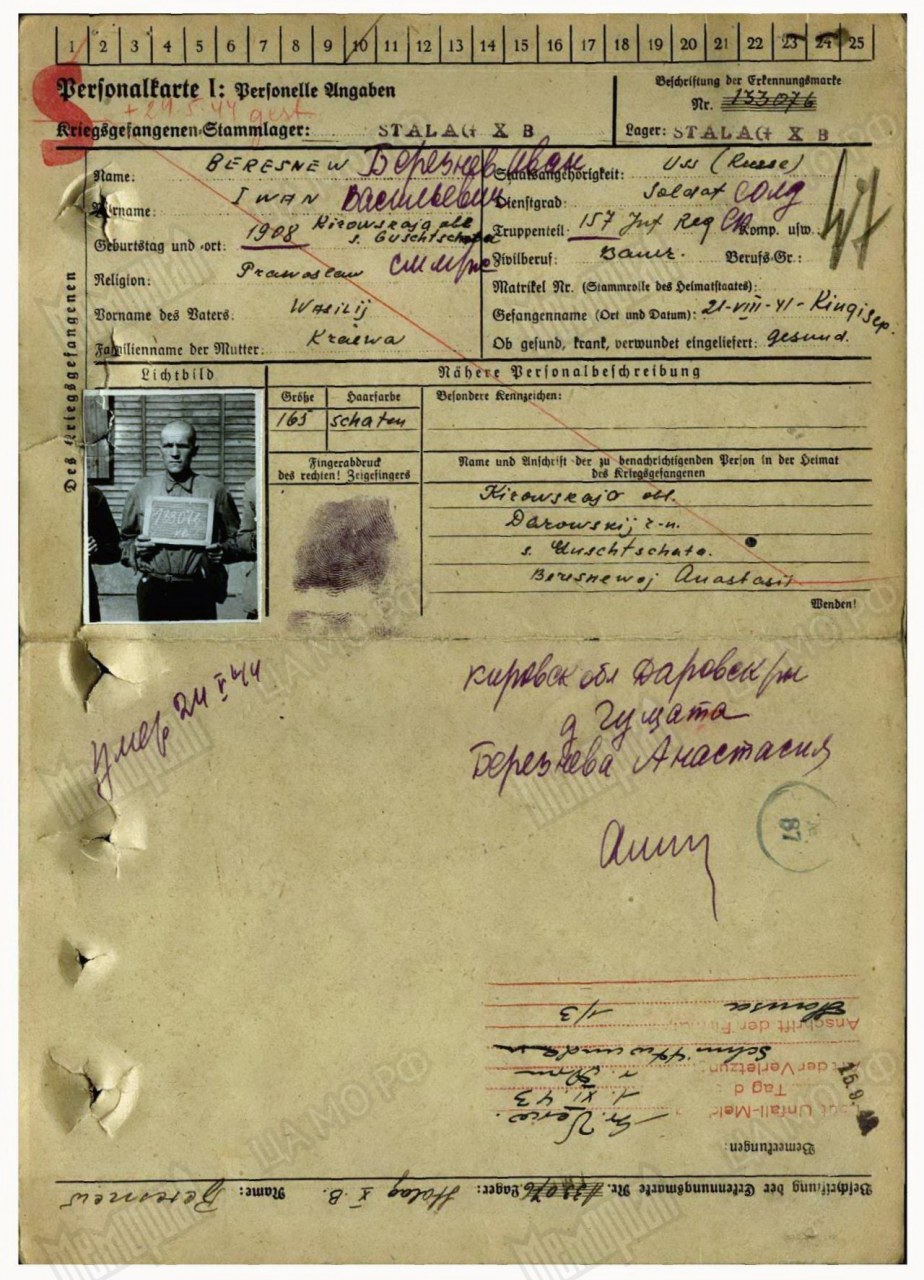 1 2 3 4 5 6 7 8 9 10 11 12 13 14 15 16 17 18 19 20 21 22 23 24 25
Personalkarte I: Personelle Angaben
Beschriftung der Erkennungsmarke
Nr. 133076
+29.5.44 gest
Kriegsgefangenen-Stammlager: STALAG X B
Lager: STALAG X B
Des Kriegsgefangenen
Name: BERESNEW Березнев Иван
Vorname: IWAN Васильевич
Geburtstag und -ort: 1908 Kirowskaja obl
s. Guschtschata
Religion: Prawoslaw
Vorname des Vaters: Wasilij
Familienname der Mutter: Kraewa
Staatsangehörigkeit: USS (Russe)
Dienstgrad: Soldat солд
Truppenteil: 157 Inf Reg СП Komp. usw.:
Zivilberuf: Bauer. Berufs-Gr.:
Matrikel Nr. (Stammrolle des Heimatstaates):
Gefangenname (Ort und Datum): 21-VIII-41-Kingisep.
Ob gesund, krank, verwundet eingeliefert: gesund.
Lichtbild
133076
Nähere Personalbeschreibung
Größe Haarfarbe
165 schaten
Besondere Kennzeichen:
Fingerabdruck
des rechten! Zeigefingers
Name und Anschrift der zu benachrichtigenden Person in der Heimat
des Kriegsgefangenen
Kirowskajo obl.
Darowskij r-n.
s. Guschtschata.
Beresnewoj Anastasii
Wenden!
умер 24 V 44
кировск обл Даровск рн
д Гущата
Березнева Анастасия
87
Beschriftung der Erkennungsmarke Nr. 133076 Lager: Stalag X B. Name: Beresnew
Bemerkungen:
Unfall-Meld
1. XI. 43
Tag d
r. Arm
der Verletzun
Anschrift der Firma
1/3
15.9.
Мемориал
ЦАМО РФ